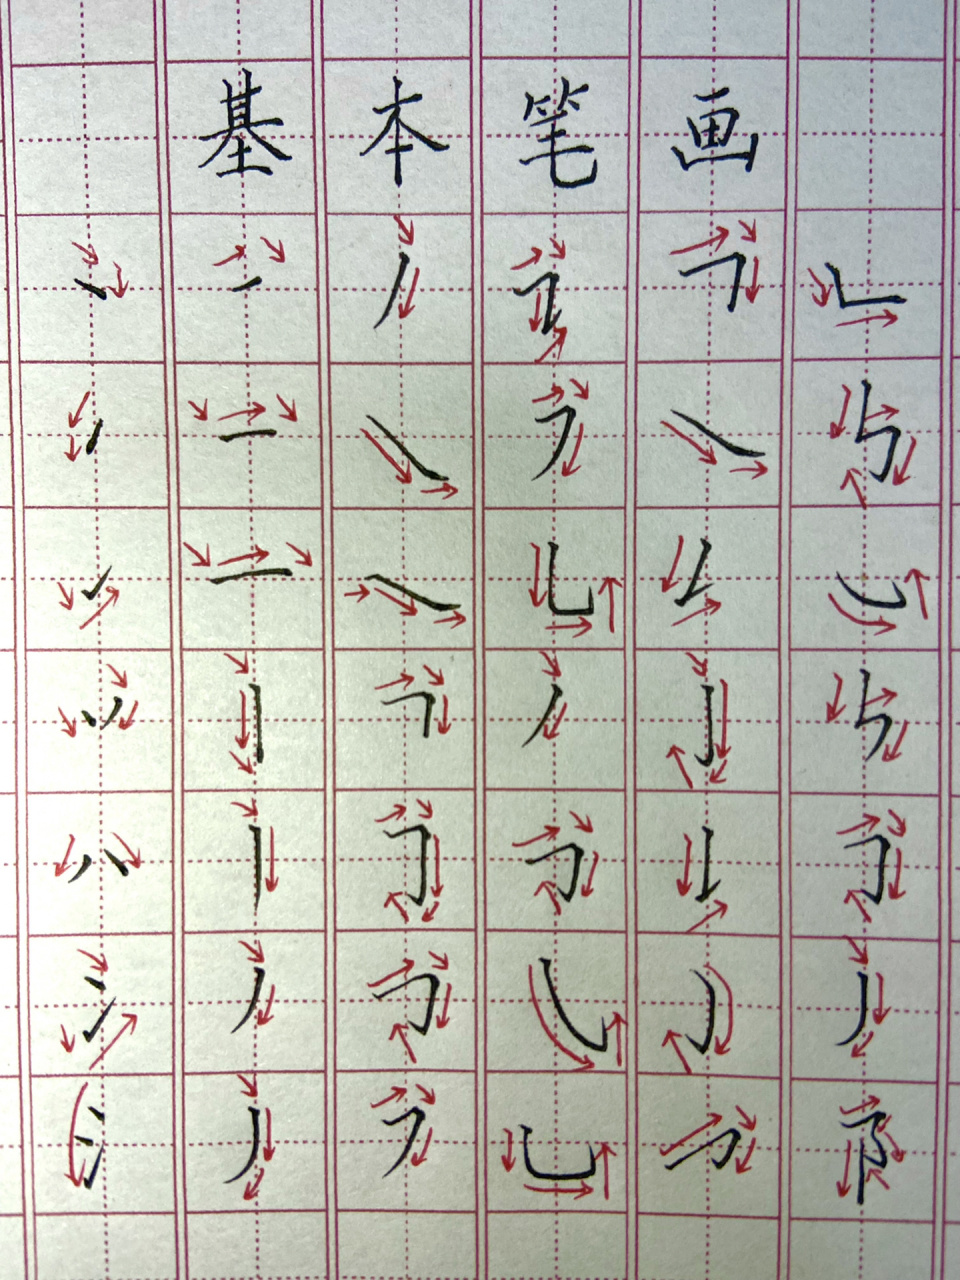 基本笔画